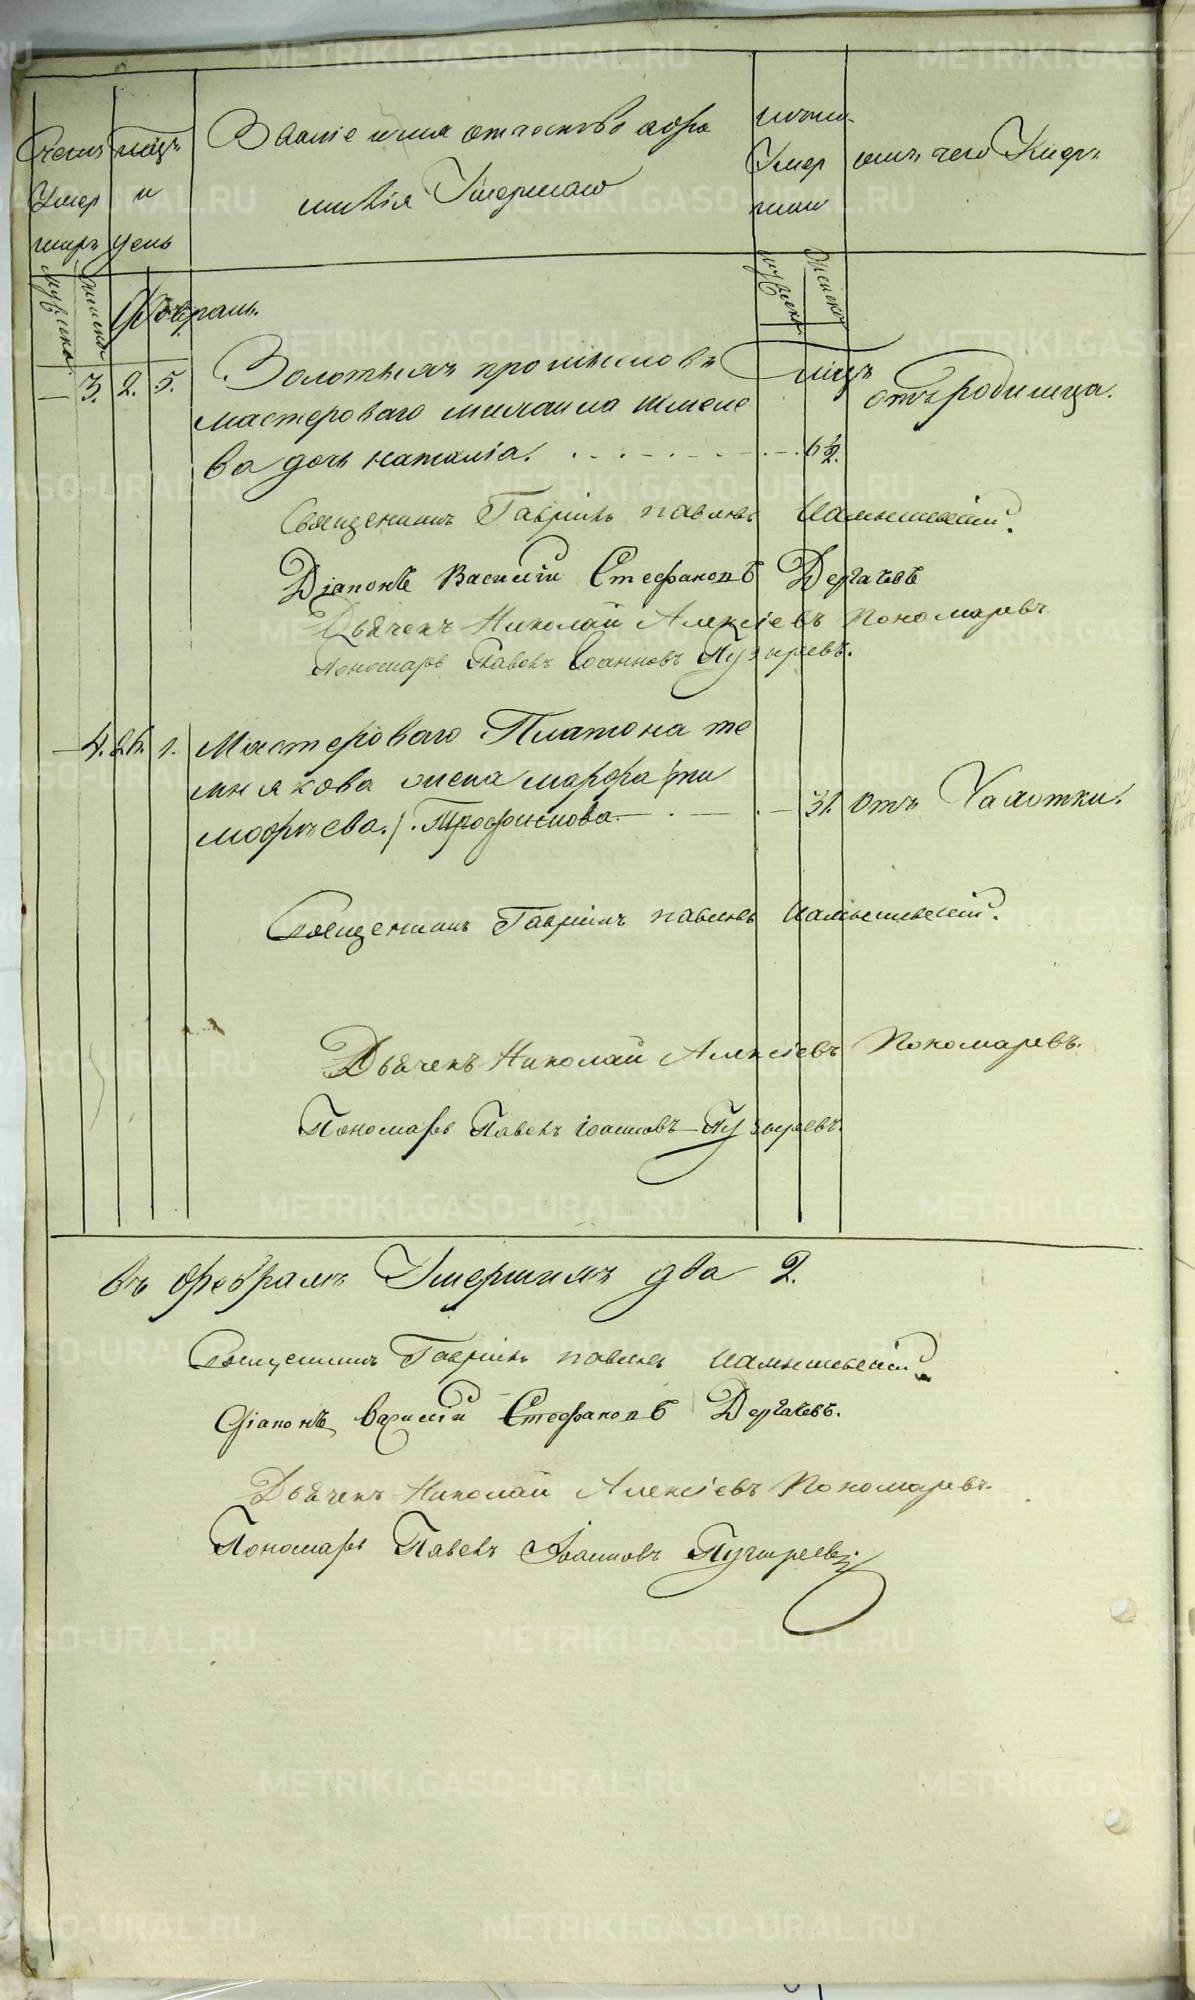 Счетъ
Умер
шихъ
мѣцъ
и
день
Званіе имя отчество и фа
милія Умершаго
Умер
шихъ
отъ чего Умеръ
мужеска
женска
мужеска
женска
Февраль.
— 3. 2. 5. Золотыхъ промысловъ мѣцъ
мастероваго михаила отъ родимца.
ва дочь наталіа. 6½.
Священникъ Гавріилъ павловъ
Діаконъ Василій Стефановъ Дергачевъ
Дьячекъ Николай Алексіевъ Пономаревъ
Пономарь Павелъ Іоанновъ Пузыревъ.
— 4. 26. 1. Мастероваго Платона те
мнякова жена марфа /ти
мофѣева./. Трофимова. — 31. отъ Чахотки.
Священникъ Гавріилъ павловъ
Дьячекъ Николай Алексіевъ Пономаревъ.
Пономарь Павелъ Іоанновъ Пузыревъ.
въ февралѣ Умершихъ два 2.
Священникъ Гавріилъ павловъ
Діаконъ Василій Стефановъ Дергачевъ.
Дьячекъ Николай Алексіевъ Пономаревъ.
Пономарь Павелъ Іоанновъ Пузыревъ
METRIKI.GASO-URAL.RU